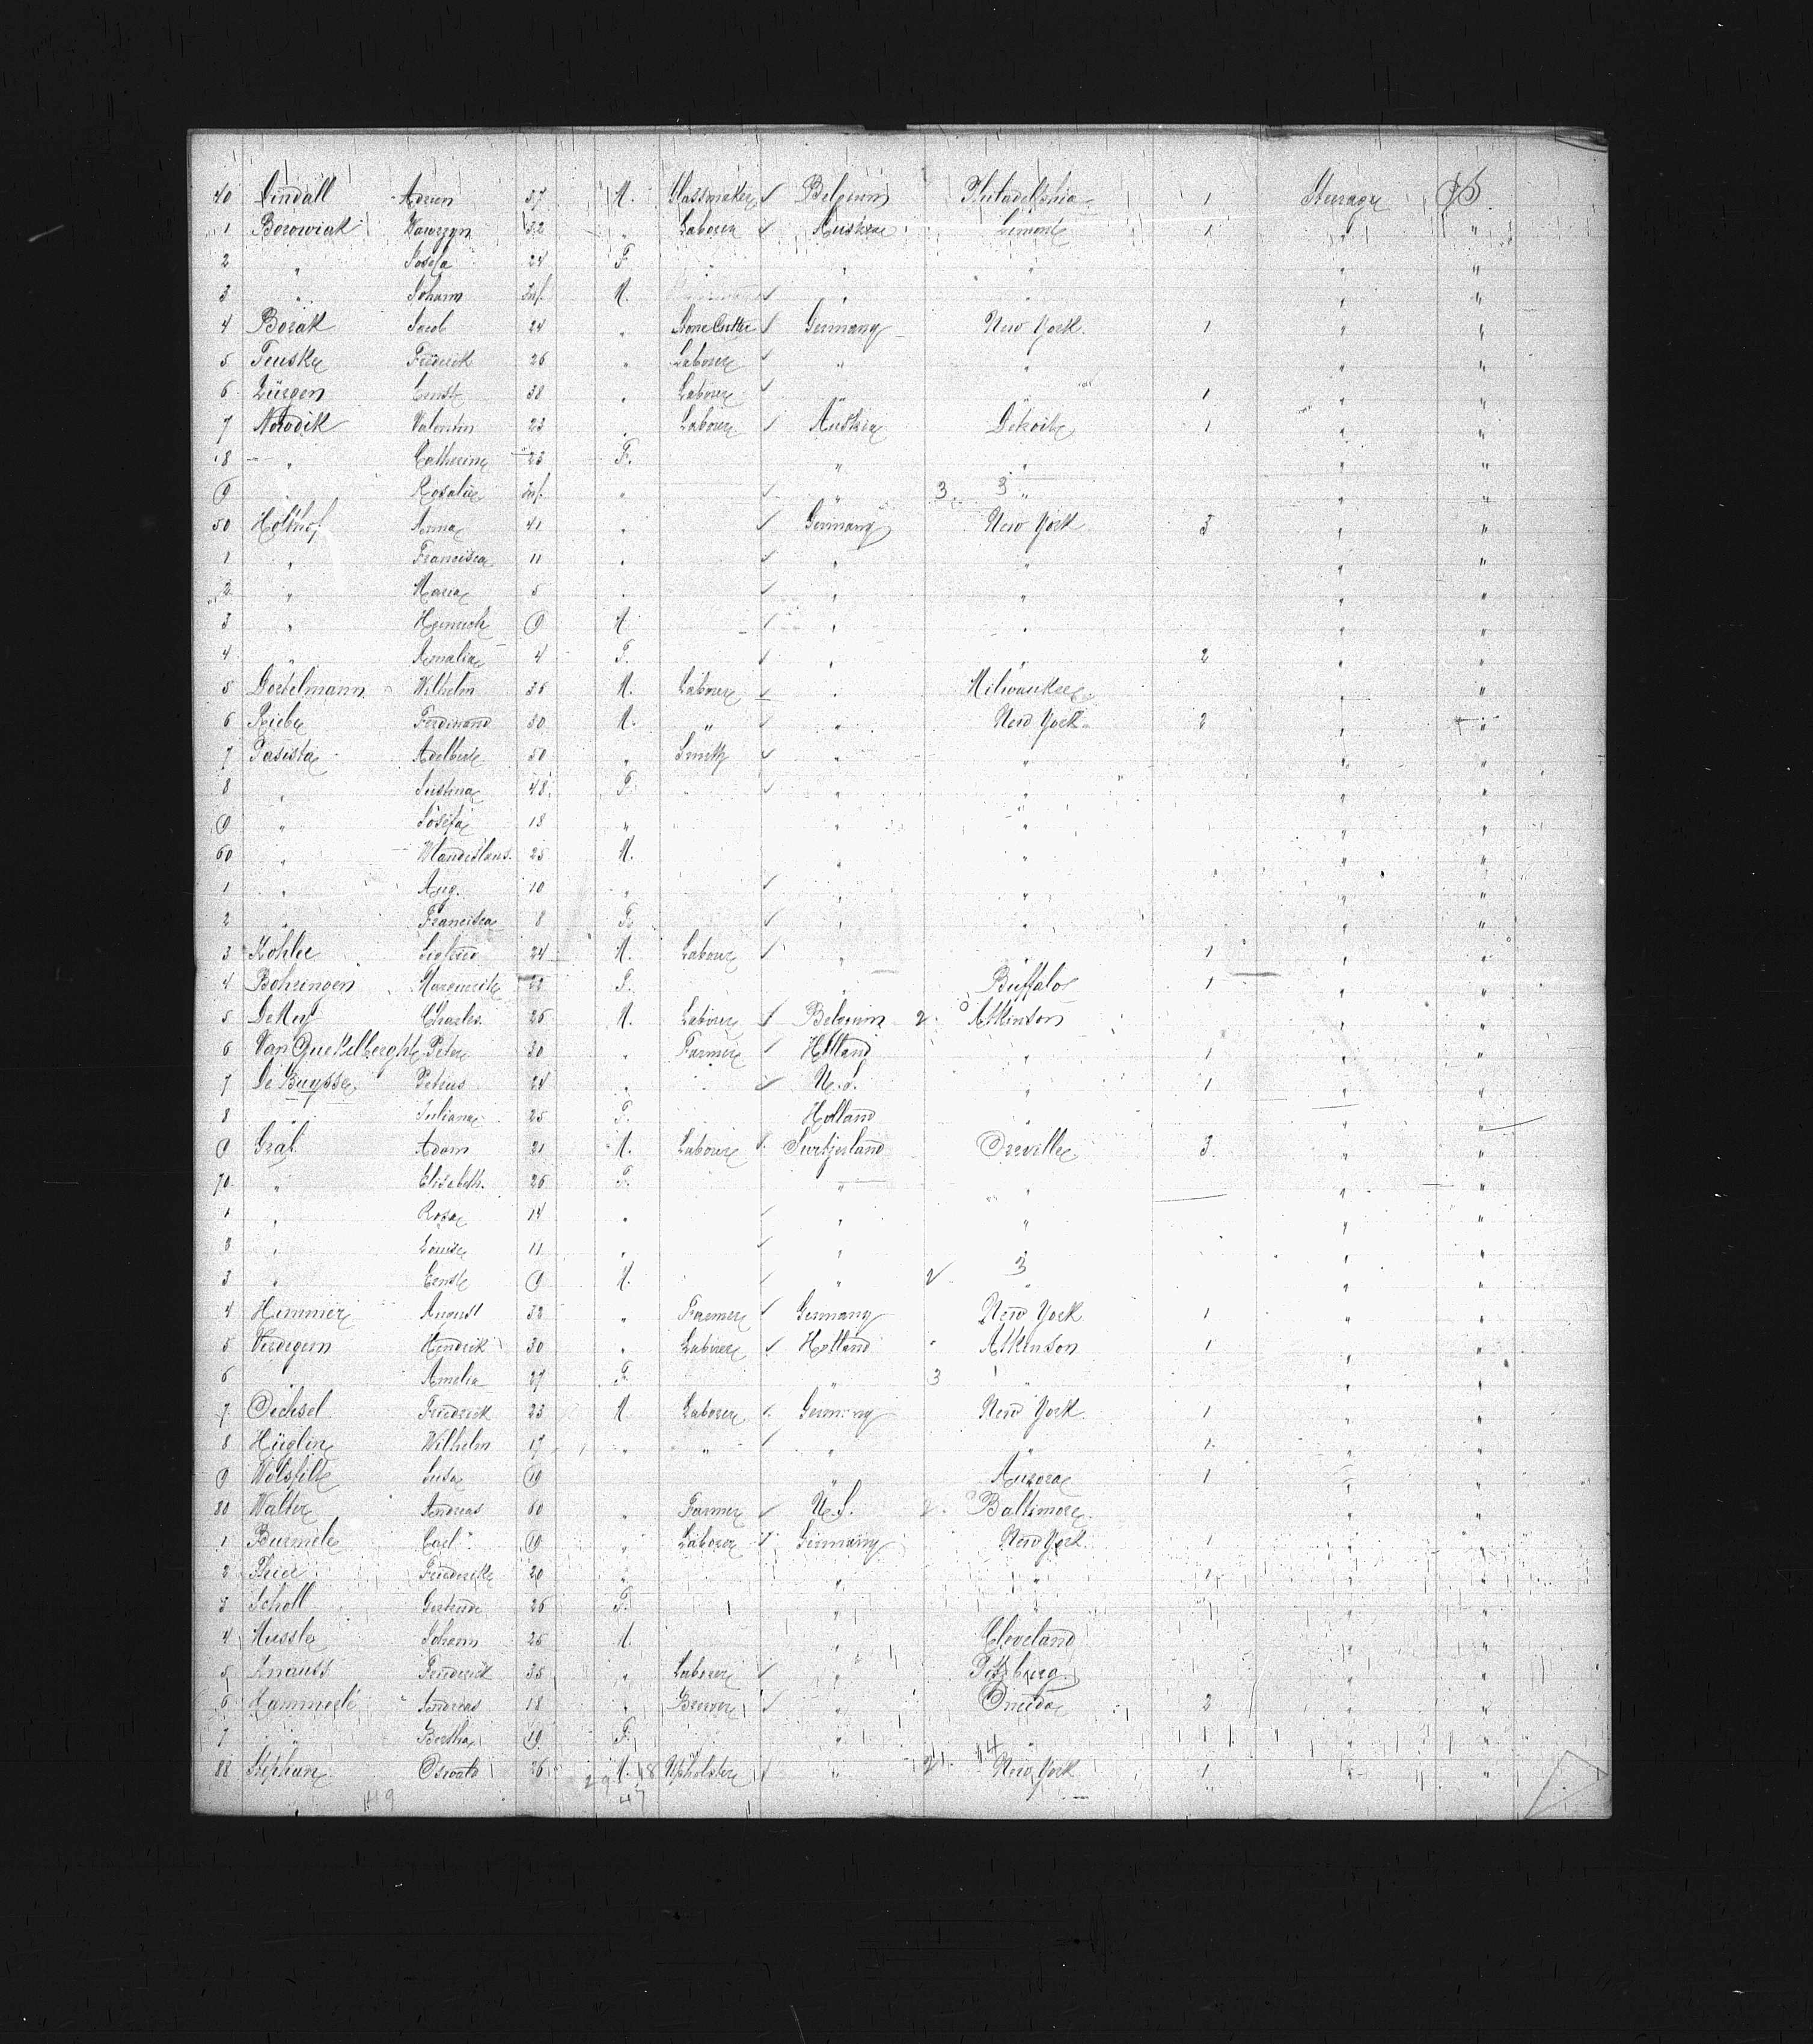 40 Lindall Adrien 37 M. Glassmaker ✓ Belgium Philadelphia 1 Steerage
1 Borowiak Wawrzyn 32 " Laborer ✓ Austria Lemont 1 " "
2 " Josefa 24 F. " " " "
3 " Johann Inf. M. ✓ " " " "
4 Borak Jacob 24 " Stone Cutter ✓ Germany New York 1 " "
5 Fenske Frederik 26 " Laborer ✓ " " " "
6 Jürgen Ernst 38 " Laborer ✓ " " 1 " "
7 Nowdik Valentin 23 " Laborer ✓ Austria Detroit 1 " "
8 " Catherine 23 F. " " " "
9 " Rosalie Inf. " ✓ " 3 3 " " "
50 Holthof Anna 41 " ✓ Germany New York 3 " "
1 " Francisca 11 " ✓ " " " "
2 " Maria 5 " ✓ " " " "
3 " Heinrich 9 M ✓ " " " "
4 " Amalia 4 F. ✓ " " 2 " "
5 Dörtelmann Wilhelm 36 M. Laborer ✓ " Milwaukee " "
6 Riebe Ferdinand 30 M. " ✓ " New York 2 " "
7 Pasista Adelbert 50 " Smith ✓ " " " "
8 " Justina 48 F. " ✓ " " " "
9 " Josefa 18 " " " " "
60 " Wladislaus 25 M. " " " "
1 " Aug. 10 " ✓ " " " "
2 " Francisca 8 F. ✓ " " " "
3 Kohler Sigfried 24 M. Laborer ✓ " 1 " "
4 Bohringen Marguerite 22 F. " Buffalo 1 " "
5 DeRuy Charles 26 M. Laborer ✓ Belgium 2 Atkinson " "
6 Van Quekelberghe Peter 30 " Farmer ✓ Holland " 1 " "
7 De Buysse Petrus 24 " " ✓ U.S. " 1 " "
8 " Juliana 25 F. Holland " " "
9 Graf Adam 21 M. Laborer ✓ Switzerland Orrville 3 " "
70 " Elisabeth 26 F. " " " "
1 " Rosa 14 " ✓ " " " "
2 " Louise 11 " ✓ " " "
3 " Ernst 9 M. ✓ " 2 3 " " "
4 Hemmer August 32 " Farmer ✓ Germany New York 1 " "
5 Verdegem Hendrik 30 " Laborer ✓ Holland Atkinson 1 " "
6 " Amelia 27 F. " 3 " " "
7 Oechsel Friedrich 23 M Laborer ✓ Germany New York 1 " "
8 Hüglin Wilhelm 17 " " ✓ " " 1 " "
9 Luisa 19 " Aurora 1 " "
80 Walter Andreas 60 " Farmer ✓ U.S. 2 Baltimore " "
1 Carl 19 " Laborer ✓ Germany New York 1 " "
2 Friederike 20 " " " 1 " "
3 Scholl Gertrude 26 F. " " " "
4 Mussle Johann 25 M. " Cleveland " "
5 Knauss Friedrich 35 " Laborer ✓ " Pittsburg " "
6 Hammerle Andreas 18 " Brewer ✓ " Oneida 2 " "
7 " Bertha 19 F. " " " "
88 Stephan Oswald 26 M. Upholster ✓ " 2 New York 1 " "